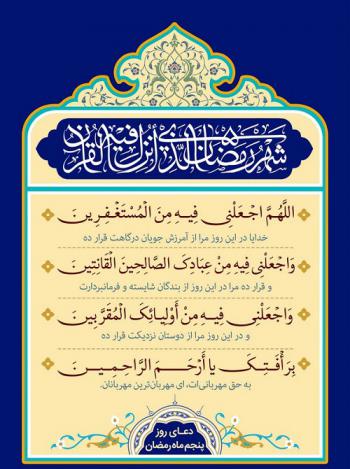 شهر رمضان الذی أنزل فیه القرآن
اللَّهُمَّ اجْعَلْنِی فِیهِ مِنَ الْمُسْتَغْفِرِینَ
خدایا در این روز مرا از آمرزش جویان درگاهت قرار ده
وَاجْعَلْنِی فِیهِ مِنْ عِبَادِکَ الصَّالِحِینَ الْقَانِتِینَ
و قرار ده مرا در این روز از بندگان شایسته و فرمانبردارت
وَاجْعَلْنِی فِیهِ مِنْ أَوْلِیَائِکَ الْمُقَرَّبِینَ
و در این روز مرا از دوستان نزدیکت قرار ده
بِرَأْفَتِکَ یَا أَرْحَمَ الرَّاحِمِینَ
به حق مهربانی‌ات، ای مهربان‌ترین مهربانان.
دعـای روز
پنجم ماه رمضان